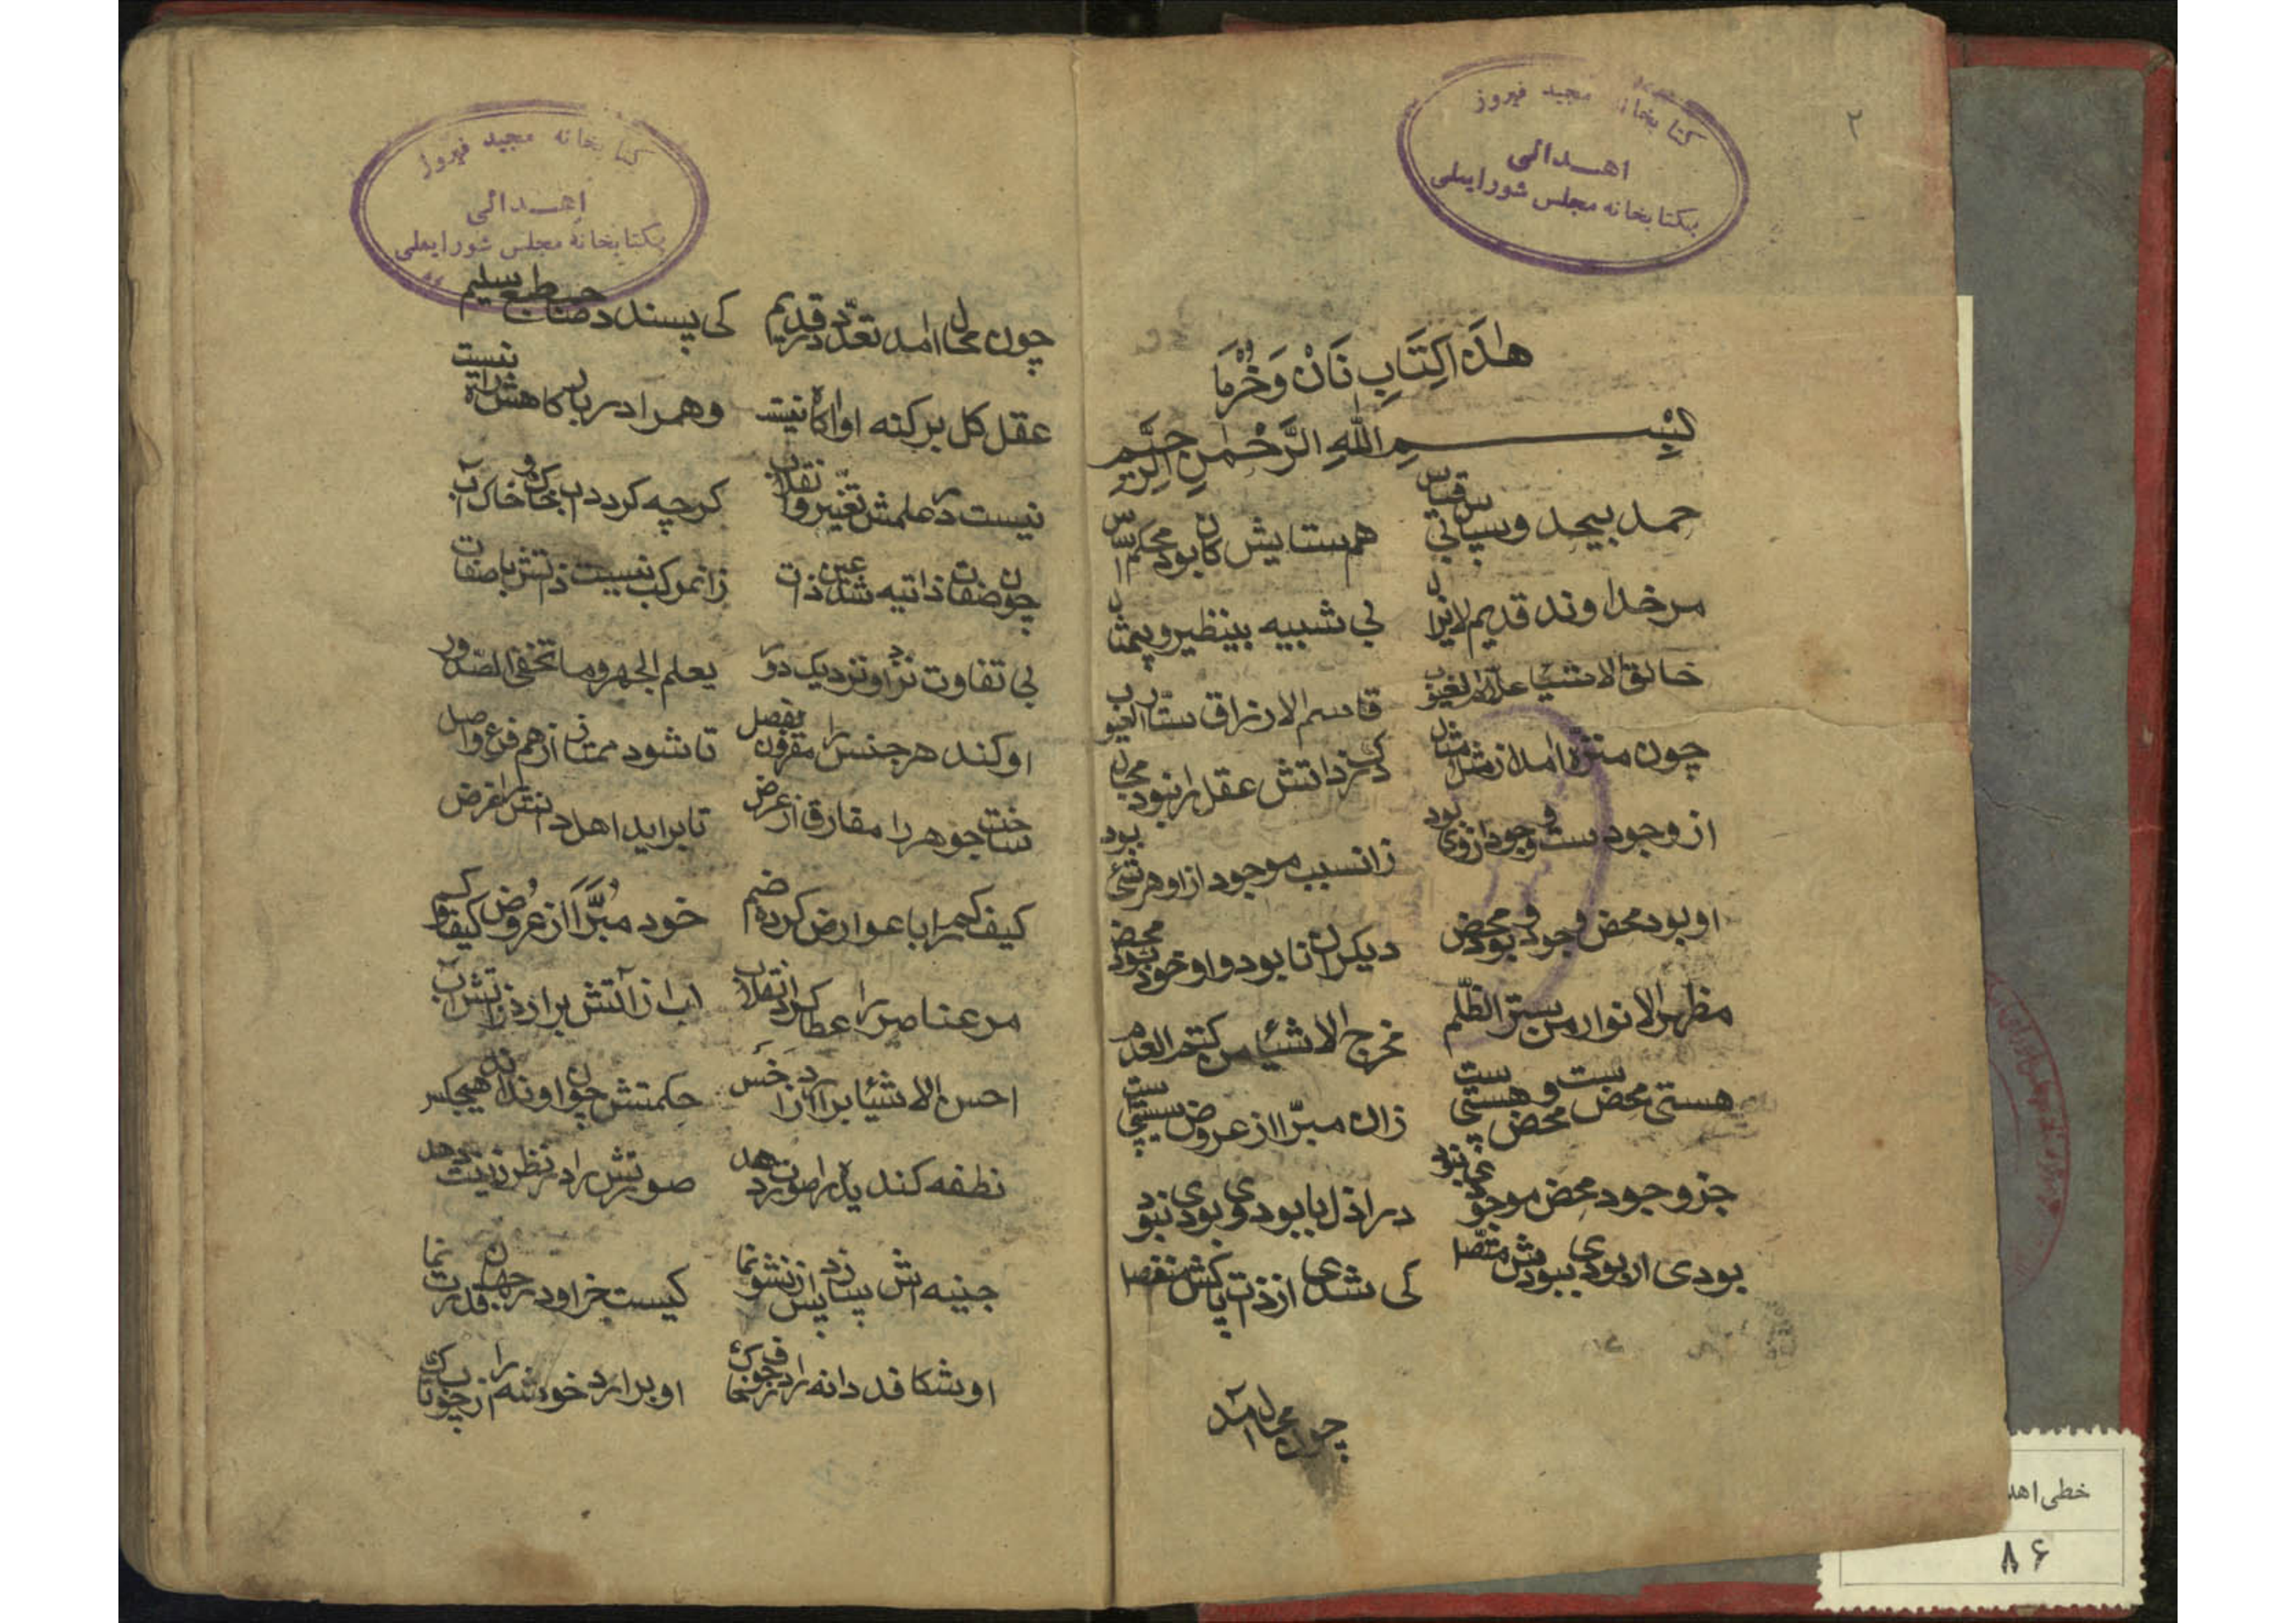 ۲
کتابخانه مجید فیروز
اهدائی
بکتابخانه مجلس شورایملی
هذه اکِتَابِ نَانْ وَخُرْمَا
بِسْمِ اللهِ الرَّحْمٰنِ الرَّحِیْمِ
حمد بیحد و سپاس بی قیاس هم ستایش کان بود محکم اساس
مر خداوند قدیم لایزال بی شبیه بینظیر و بیمثال
خالق الاشیا علام الغیوب قاسم الارزاق ستار العیوب
چون منزه امد از مثل و مثال درک ذاتش عقل را نبود مجال
از وجودست و وجود از وی بود زانسبب موجود از او هر شئی بود
او بود محض وجود و بود محض دیکران نابود و او خود بود محض
مظهر الانوار من ستر الظّلم مخرج الاشیا من کتم العدم
هستی محض ست و هستی محض ست زان مبرّا از عروض نیستی ست
جز وجود محض موجودی نبود در ازل با بود وی بودی نبود
بودی ار بودی ببودش متّصل کی شدی از ذات پاکش منفصل
چون محال آمد
کتابخانه مجید فیروز
اهدائی
بکتابخانه مجلس شورایملی
چون محال امد تعدّد در قدیم کی پسندد صاحب طبع سلیم
عقل کل بر کنه او اکاه نیست وهم را در بارکاهش راه نیست
نیست در علمش تغیّر و انقلاب کرچه کردد اب خاک و خاک آب
چون صفات ذاتیه شد عین ذات زان مرکب نیست ذاتش با صفات
بی تفاوت نزد او نزدیک و دور یعلم الجهر وما تخفی الصّدور
او کند هر جنس را مقرون بفصل تا شود ممتاز از هم فرع و اصل
ساخت جوهر را مفارق از عرض تا براید اهل دانش را غرض
کیف کم را با عوارض کرده ضم خود مُبَرَّا از عروض کیف و کم
مر عناصر را عطا کرد انقلاب اب از آتش برارد ز آتش آب
احسن الاشیا برآرد از اخس حکمتش چون او نداند هیچکس
نطفه کندیده را صورت دهد صورتش را در نظر زینت دهد
کیست جز او در جهان قدرت نما
او شکافد دانه را او برارد خوشه را از
خطی اهد
۸۶